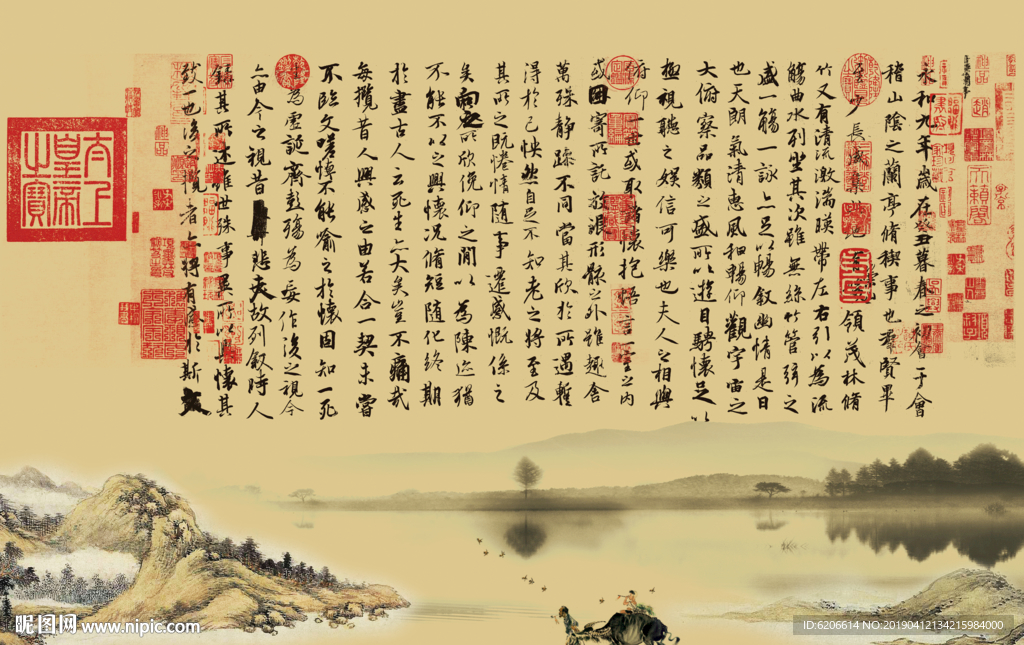 永和九年歲在癸丑暮春之初會于會
稽山陰之蘭亭脩稧事也羣賢畢
至少長咸集此地領茂林脩
竹又有清流激湍暎帶左右引以為流
觴曲水列坐其次雖無絲竹管弦之
盛一觴一詠亦足以暢敘幽情是日
也天朗氣清惠風和暢仰觀宇宙之
大俯察品類之盛所以遊目騁懷足以
極視聽之娛信可樂也夫人之相與
俯仰一世或取諸懷抱悟言一室之內
或因寄所託放浪形骸之外雖趣舍
萬殊靜躁不同當其欣於所遇暫
得於己怏然自足不知老之將至及
其所之既惓情隨事遷感慨係之
矣向之所欣俛仰之閒以為陳迹猶
不能不以之興懷況脩短隨化終期
於盡古人云死生亦大矣豈不痛哉
每攬昔人興感之由若合一契未嘗
不臨文嗟悼不能喻之於懷固知一死
生為虛誕齊彭殤為妄作後之視今
亦由今之視昔悲夫故列敘時人
錄其所述雖世殊事異所以興懷其
致一也後之攬者亦將有感於斯文
太上皇帝之寶
昵图网 www.nipic.com
ID:6206614 NO:20190412134215984000